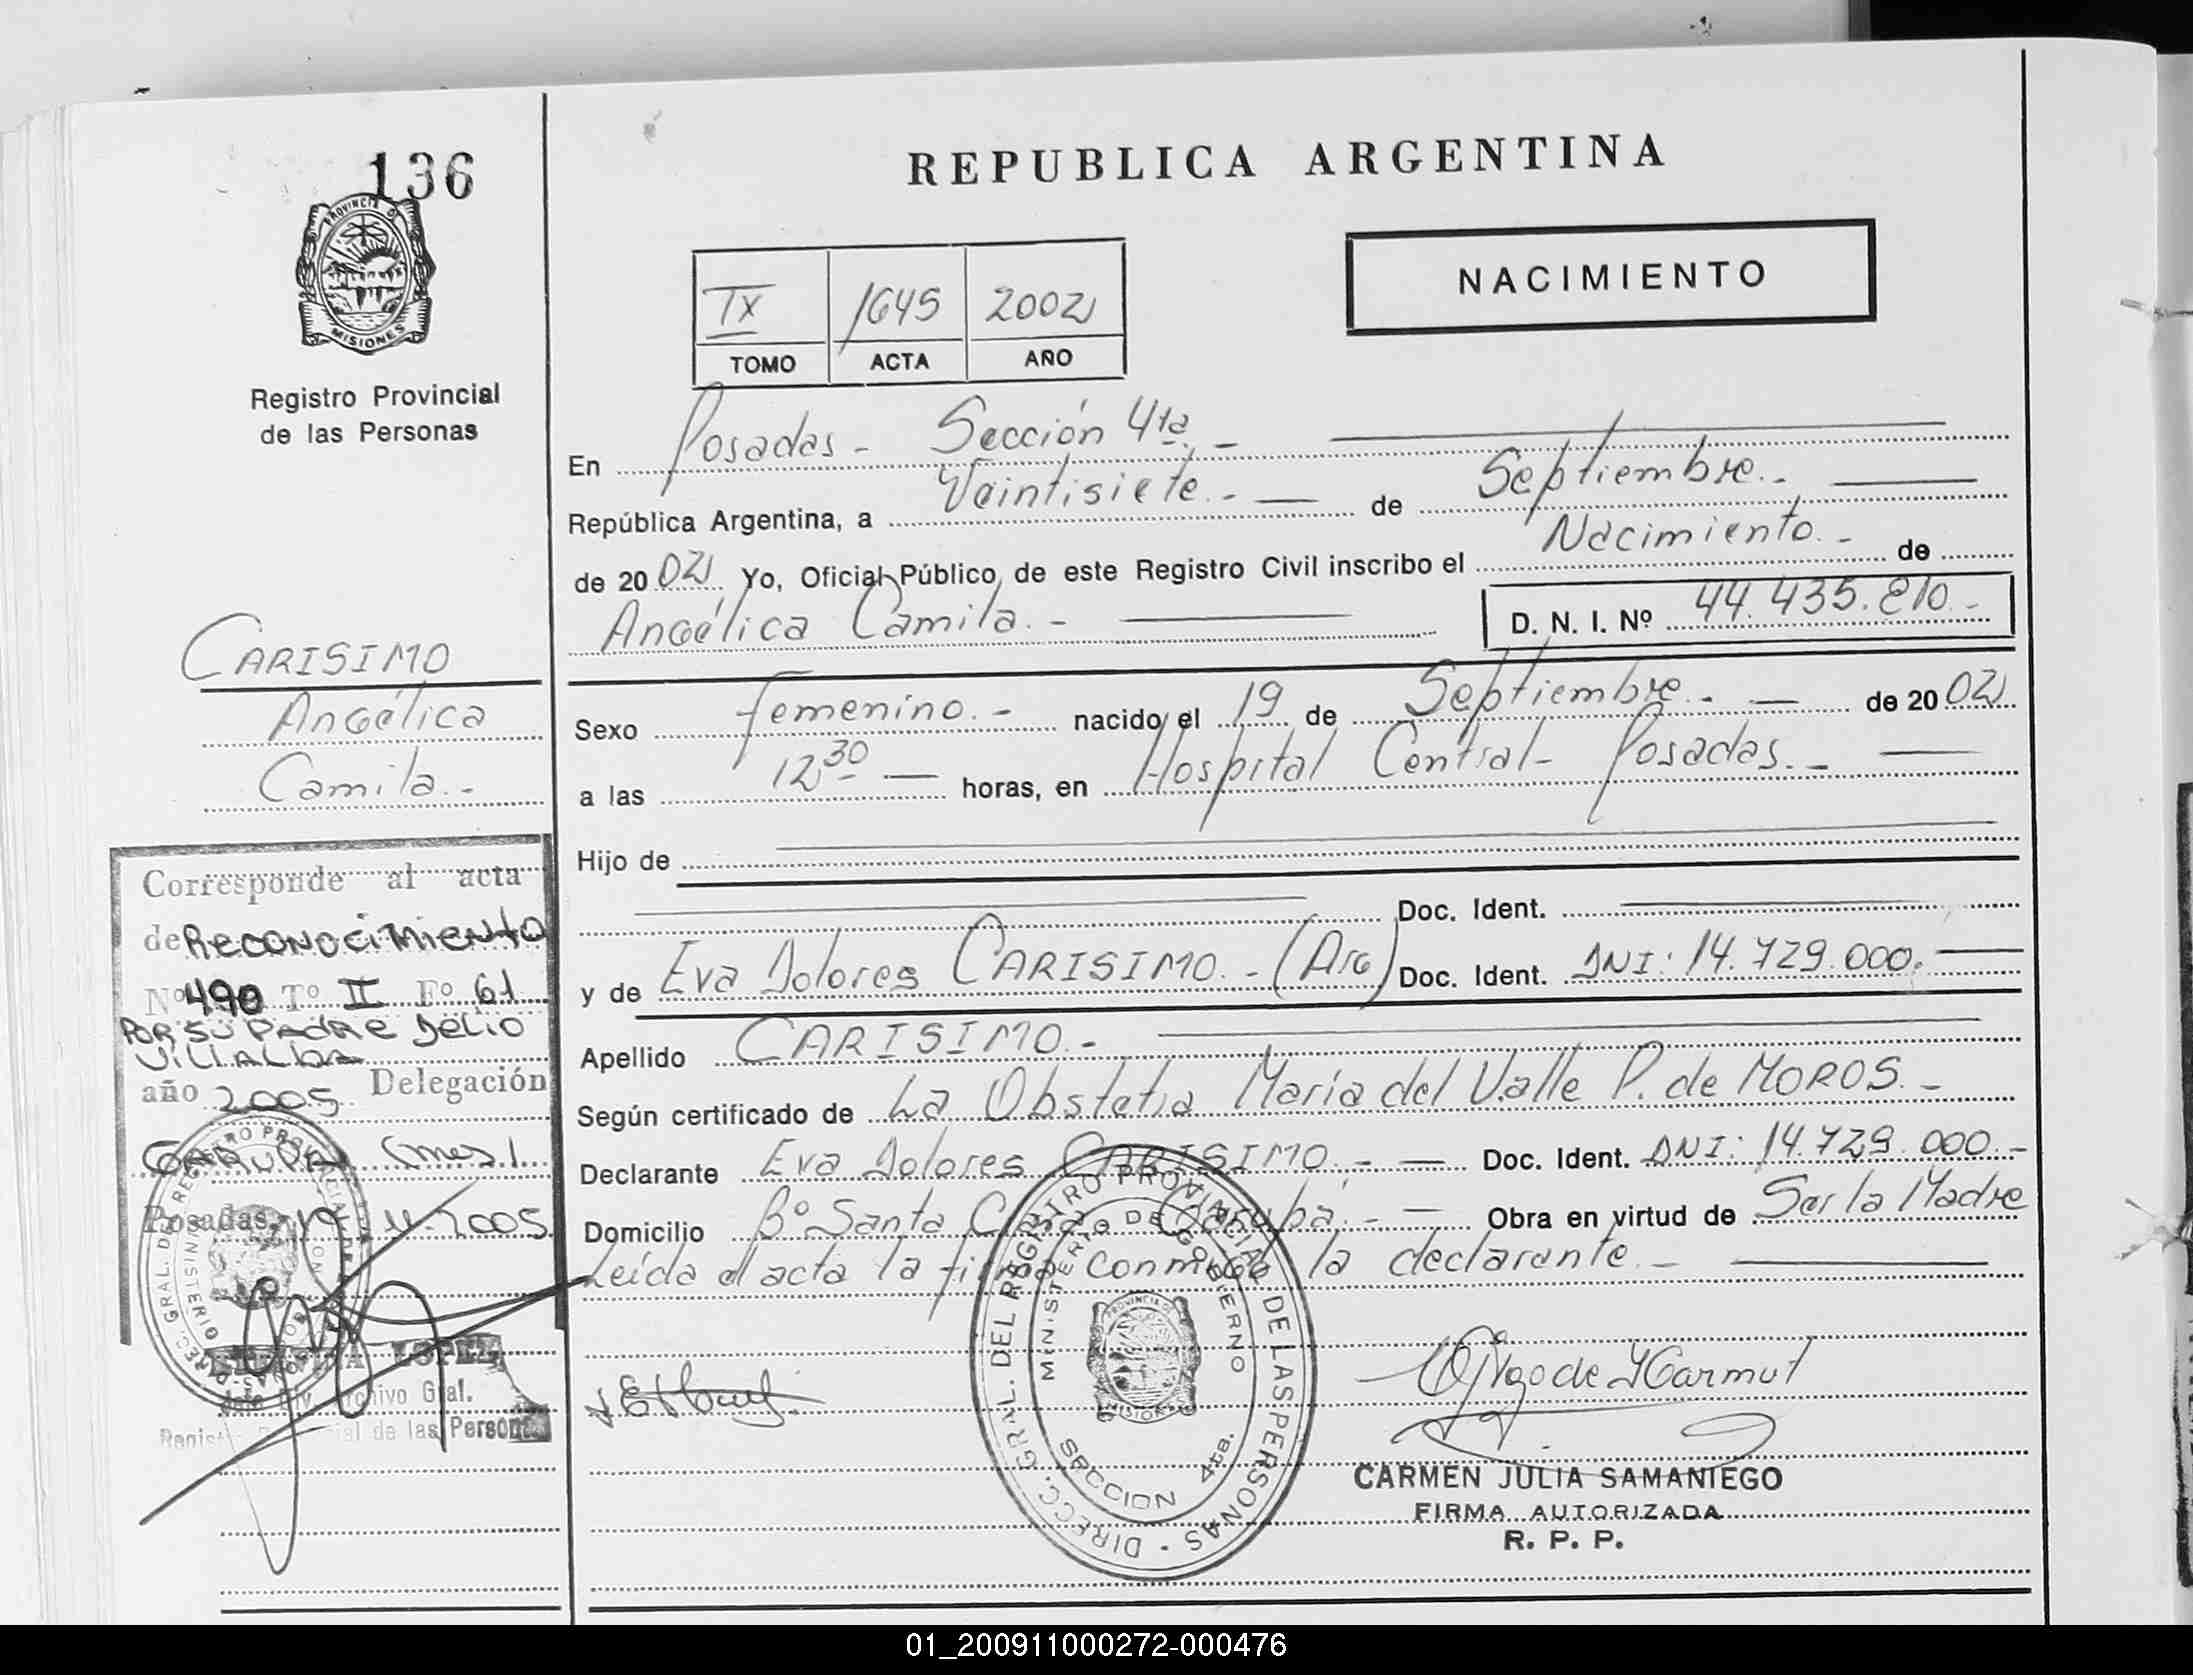 136
PROVINCIA DE
MISIONES
Registro Provincial
de las Personas
CARISIMO
Angélica
Camila.-
Corresponde al acta
de Reconocimiento
Nº 490 Tº II Fº 61
POR SU PADRE DELIO
VILLALBA
año 2005 Delegación
GARUPA (Mnes).
Posadas, 11-2005
Archivo Gral.
de las Personas
REPUBLICA ARGENTINA
NACIMIENTO
IX 1645 2002
TOMO ACTA AÑO
En Posadas - Sección 4ta.-
República Argentina, a Veintisiete.- de Septiembre.-
de 2002 Yo, Oficial Público, de este Registro Civil inscribo el Nacimiento.- de
Angélica Camila.- D. N. I. Nº 44.435.810.-
Sexo femenino.- nacido el 19 de Septiembre.- de 2002
a las 12,30 horas, en Hospital Central- Posadas.-
Hijo de
Doc. Ident.
y de Eva Dolores CARISIMO.- (Arg) Doc. Ident. DNI: 14.729.000.
Apellido CARISIMO.-
Según certificado de La Obstetra María del Valle P. de MOROS.-
Declarante Eva Dolores CARISIMO.- Doc. Ident. DNI: 14.729.000.-
Domicilio Bº Santa Clara - Garupá.- Obra en virtud de Ser la Madre
Leída el acta la firma conmigo la declarante.-
DIRECC. GRAL. DEL REGISTRO PROVINCIAL DE LAS PERSONAS
MINISTERIO DE GOBIERNO
SECCION 4ta.
CARMEN JULIA SAMANIEGO
FIRMA AUTORIZADA
R. P. P.
01_200911000272-000476